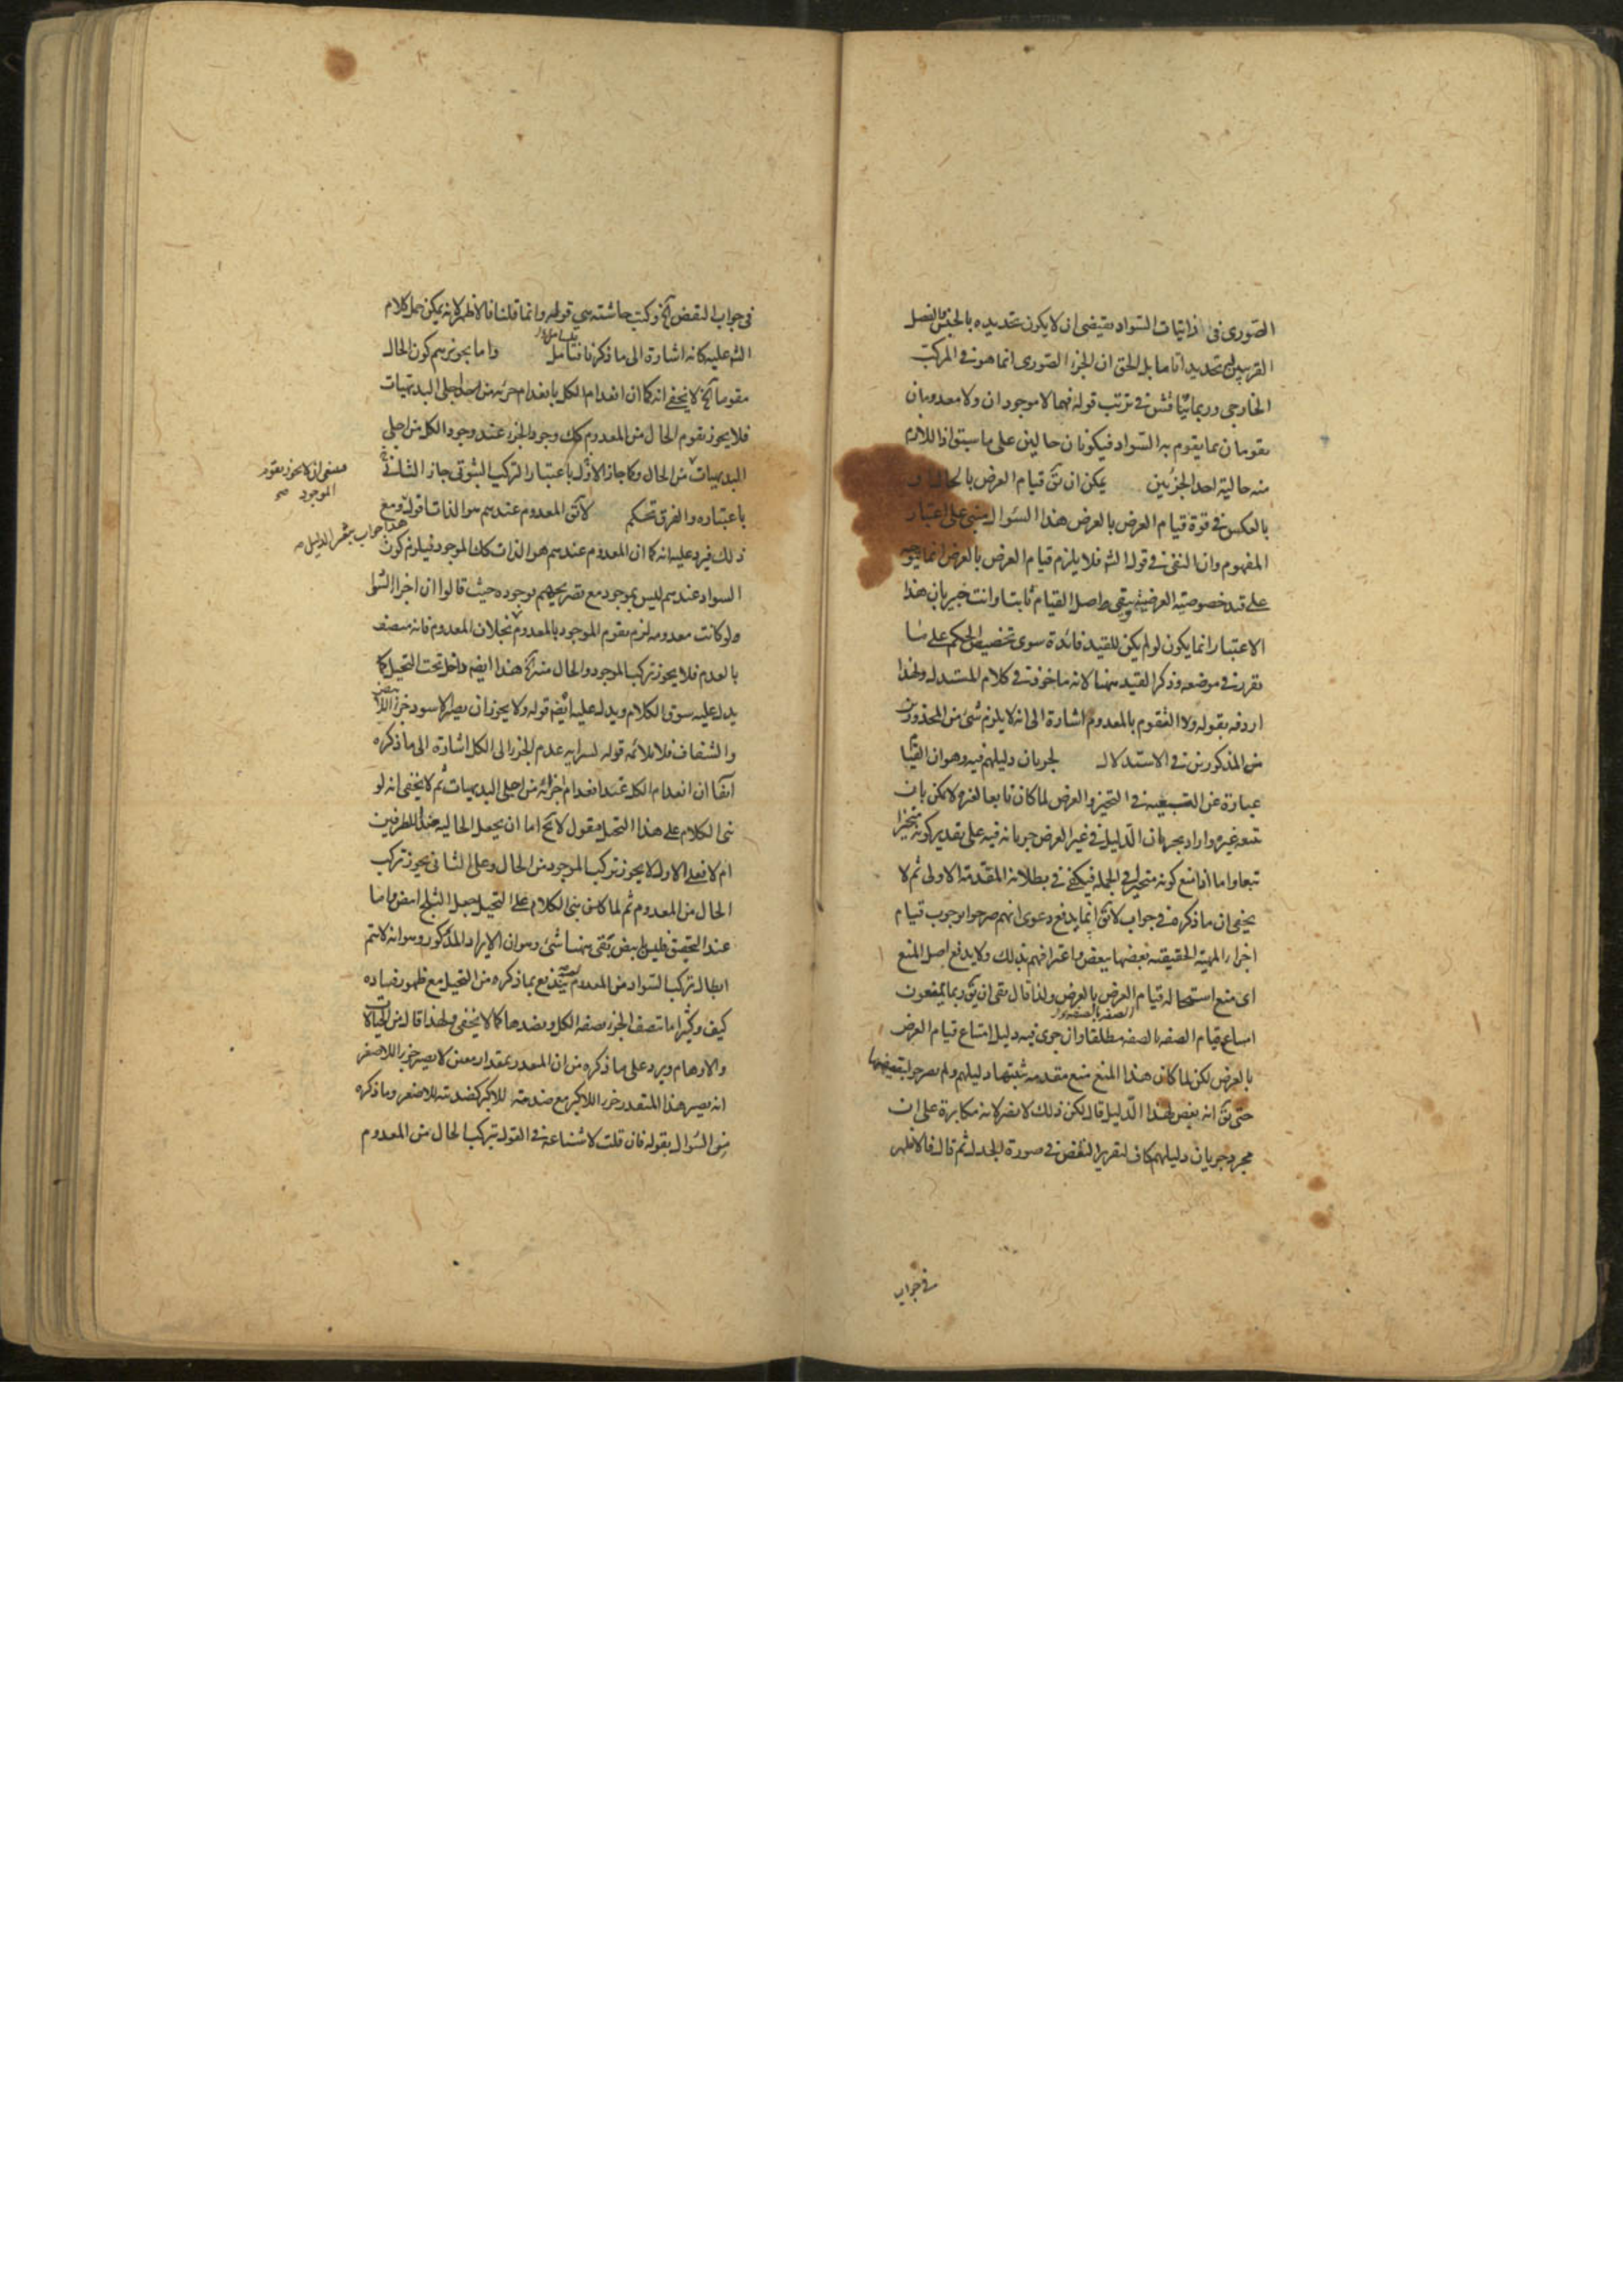 الصورى فى ذاتيات السواد يقتضى ان لا يكون تحديده بالجنس والفصل
القريبين تحديدا تاما بل الحق ان الجزء الصورى انما هو فى المركب
الخارجى وربما يناقش فى ترتب قوله فهما لا موجودان ولا معدومان
يقومان بما يقوم به السواد فيكونان حالين على ما سبق اذ اللازم
منه حالية احد الجزئين يمكن ان يق قيام العرض بالحال او
بالعكس فى قوة قيام العرض بالعرض هذا السؤال مبنى على اعتبار
المفهوم وان النفى فى قول الش فلا يلزم قيام العرض بالعرض انما يتوجه
على قيد خصوصية العرضية ويبقى اصل القيام ثابتا وانت خبير بان هذا
الاعتبار انما يكون لو لم يكن للقيد فائدة سوى تخصيص الحكم على ما
تقرر فى موضعه وذكر القيد ههنا لانه ماخوذ فى كلام المستدل ولهذا
اردفه بقوله ولا التقوم بالمعدوم اشارة الى انه لا يلزم شئ من المحذورين
من المذكورين فى الاستدلال لجريان دليلهم فيه وهو ان القيام
عبارة عن التبعية فى التحيز والعرض لما كان تابعا لغيره لا يمكن بان
يتبعه غيره واراد بجريان الدليل فى غير العرض جريانه فيه على تقدير كونه متحيزا
تبعا واما اذا منع كونه متحيزا فى الجملة فيكفى فى بطلانه المقدمة الاولى ثم لا
يخفى ان ما ذكره فى جواب لا يق انما يدفع دعوى انهم صرحوا بوجوب قيام
اجزاء المهية الحقيقية بعضها ببعض واعترافهم بذلك ولا يدفع اصل المنع
اى منع استحالة قيام العرض بالعرض ولذا قال بقى ان يق ربما يمنعون
امتناع قيام الصفة بالصفة مطلقا وان جرى فيه دليل امتناع قيام العرض
بالعرض لكن لما كان هذا المنع منع مقدمة يثبتها دليلهم ولم يصرحوا بنقيضها
حتى يق انه نقض لهذا الدليل قال لكن ذلك لا يضر لانه مكابرة على ان
مجرد جريان دليلهم كاف لتقرير النقض فى صورة الجدل ثم قال فالاظهر
فى جواب
فى جواب النقض آلخ وكتب حاشية هى قوله وانما قلنا فالاظهر لانه يمكن حمل كلام
الش عليه كانه اشارة الى ما ذكرنا فتامل واما تجويزهم كون الحال
مقوما آلخ لا يخفى انه كما ان انعدام الكل بانعدام جزئه من اجلى البديهيات
فلا يجوز تقوم الحال من المعدوم كك وجود الجزء عند وجود الكل من اجلى
البديهيات من الحال وكما جاز الاول باعتبار التركيب الثبوتى جاز الثانى
باعتباره والفرق تحكم لا يق المعدوم عندهم هو الذات قوله ومع
ذلك فيرد عليه انه كما ان المعدوم عندهم هو الذات كك الموجود فيلزم كون
السواد عندهم ليس بموجود مع تصريحهم بوجوده حيث قالوا ان اجزاء السواد
ولو كانت معدومة لزم تقوم الموجود بالمعدوم بخلاف المعدوم فانه متصف
بالعدم فلا يجوز تركب الموجود والحال منه آلخ هذا ايضه داخل تحت التخيل كما
يدل عليه سوق الكلام ويدل عليه ايضه قوله ولا يجوز ان يصير الاسود جزءا للابيض
والشفاف فلا يلائمه قوله لسراية عدم الجزء الى الكل اشارة الى ما ذكره
آنفا ان انعدام الكل عند انعدام جزئه من اجلى البديهيات ثم لا يخفى انه لو
بنى الكلام على هذا التخيل فنقول لا يخ اما ان يجعل الحالية ضدا للطرفين
ام لا فعلى الاول لا يجوز تركب الموجود من الحال وعلى الثانى يجوز تركب
الحال من المعدوم ثم لما كان بنى الكلام على التخيل جعل الثلج ابيض واما
عند التحقيق فليس بابيض بقى ههنا شئ وهو ان الايراد المذكور وهو انه لا يتم
ابطال تركب السواد من المعدوم يندفع بما ذكره من التخيل مع ظهور فساده
كيف وكثيرا ما يتصف الجزء بصفة الكل وبضدها كما لا يخفى ولهذا قال من الخيالات
والاوهام ويرد على ما ذكره من ان المقدر بمقدار معين لا يصير جزءا للاصغر
انه يصير هذا المتقدر جزءا للاكبر مع ضديته للاكبر كضديته للاصغر وما ذكره
من السؤال بقوله فان قلت لا شناعة فى القول بتركب الحال من المعدوم
بمعنى انه لا يجوز تقوم
الموجود صح